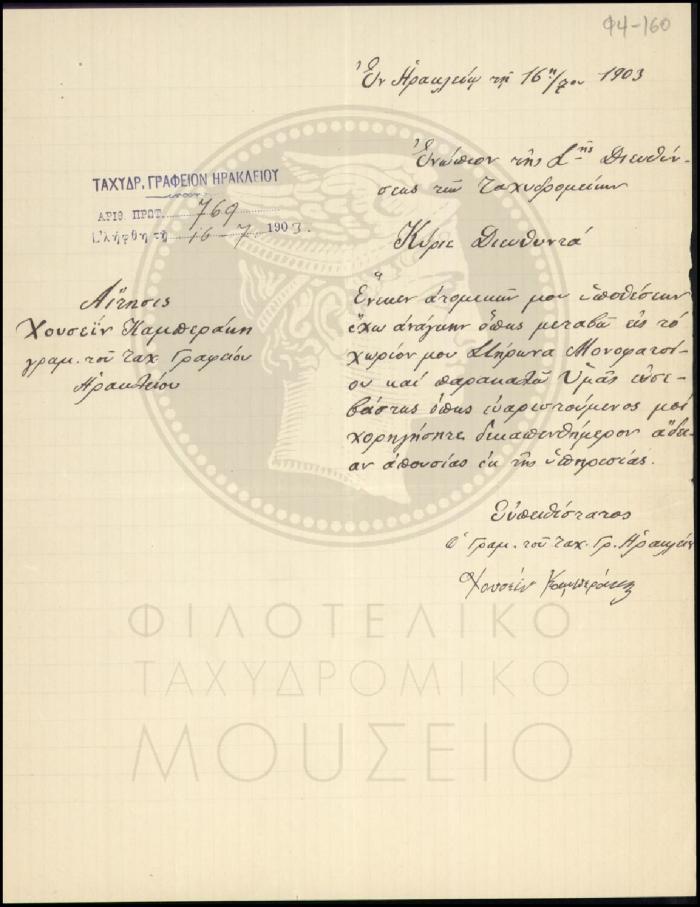 Φ4-160
Ἐν Ἡρακλείῳ τῇ 16 η/7ου 1903
Ἐνώπιον τῆς Σ-τῆς Διευθύν-
σεως τῶν Ταχυδρομείων
ΤΑΧΥΔΡ. ΓΡΑΦΕΙΟΝ ΗΡΑΚΛΕΙΟΥ
ΑΡΙΘ. ΠΡΩΤ. 769
Ἐλήφθη τῇ 16-7- 1903.
Κύριε Διευθυντά
Αἴτησις
Χουσεΐν Καμπεράκη
γραμ. τοῦ ταχ. Γραφείου
Ἡρακλείου
Ἕνεκεν ἀτομικῶν μου ὑποθέσεων
ἔχω ἀνάγκην ὅπως μεταβῶ εἰς τὸ
χωρίον μου Στήρωνα Μονοφατσί-
ου καὶ παρακαλῶ Ὑμᾶς εὐσε-
βάστως ὅπως εὐαρεστούμενος μοὶ
χορηγήσητε δεκαπενθήμερον ἄδει-
αν ἀπουσίας ἐκ τῆς ὑπηρεσίας.
Εὐπειθέστατος
ὁ Γραμ. τοῦ ταχ. Γρ. Ἡρακλείου
Χουσεΐν Καμπεράκης
ΦΙΛΟΤΕΛΙΚΟ
ΤΑΧΥΔΡΟΜΙΚΟ
ΜΟΥΣΕΙΟ